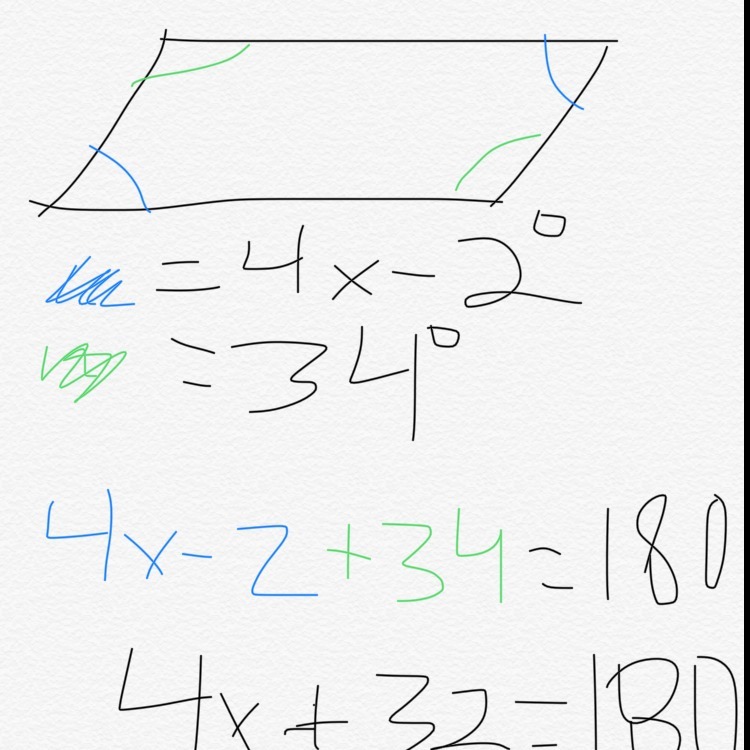 = 4x - 2°
= 34°
4x - 2 + 34 = 180
4x + 32 = 180